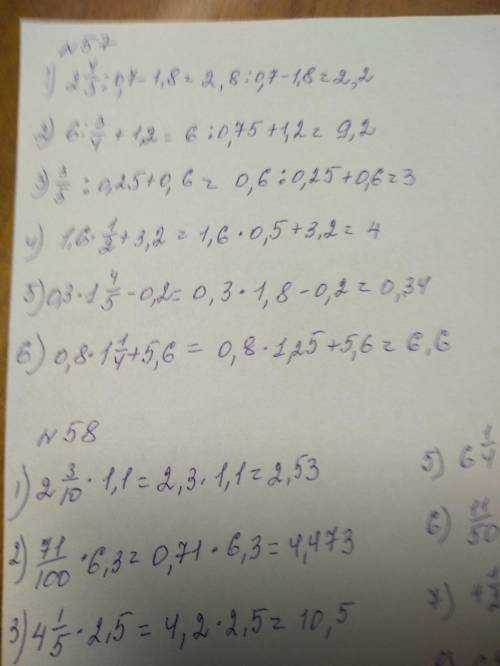 №57
1) 2 4/5 : 0,7 - 1,8 = 2,8 : 0,7 - 1,8 = 2,2
2) 6 : 3/4 + 1,2 = 6 : 0,75 + 1,2 = 9,2
3) 3/5 : 0,25 + 0,6 = 0,6 : 0,25 + 0,6 = 3
4) 1,6 · 1/2 + 3,2 = 1,6 · 0,5 + 3,2 = 4
5) 0,3 · 1 4/5 - 0,2 = 0,3 · 1,8 - 0,2 = 0,34
6) 0,8 · 1 1/4 + 5,6 = 0,8 · 1,25 + 5,6 = 6,6
№58
1) 2 3/10 · 1,1 = 2,3 · 1,1 = 2,53
2) 71/100 · 6,3 = 0,71 · 6,3 = 4,473
3) 4 1/5 · 2,5 = 4,2 · 2,5 = 10,5
5) 6 1/4
6) 11/50
7)